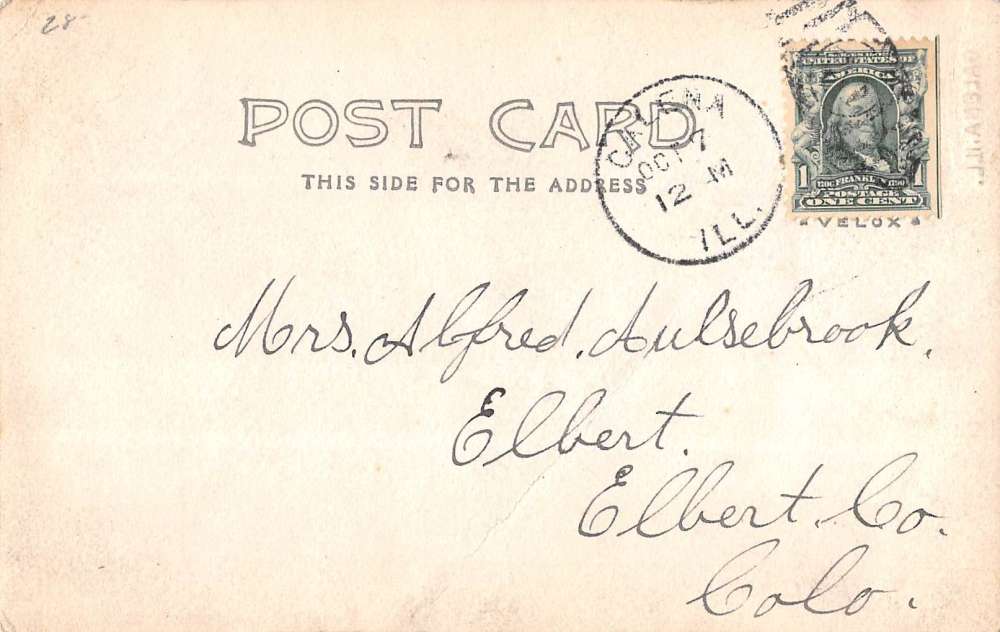 28-
POST CARD
THIS SIDE FOR THE ADDRESS
GALENA
OCT 7
12 M
ILL.
UNITED STATES OF
AMERICA
1 FRANKLIN 1
POSTAGE
ONE CENT
VELOX
Mrs. Alfred. Aulsebrook.
Elbert.
Elbert. Co.
Colo.